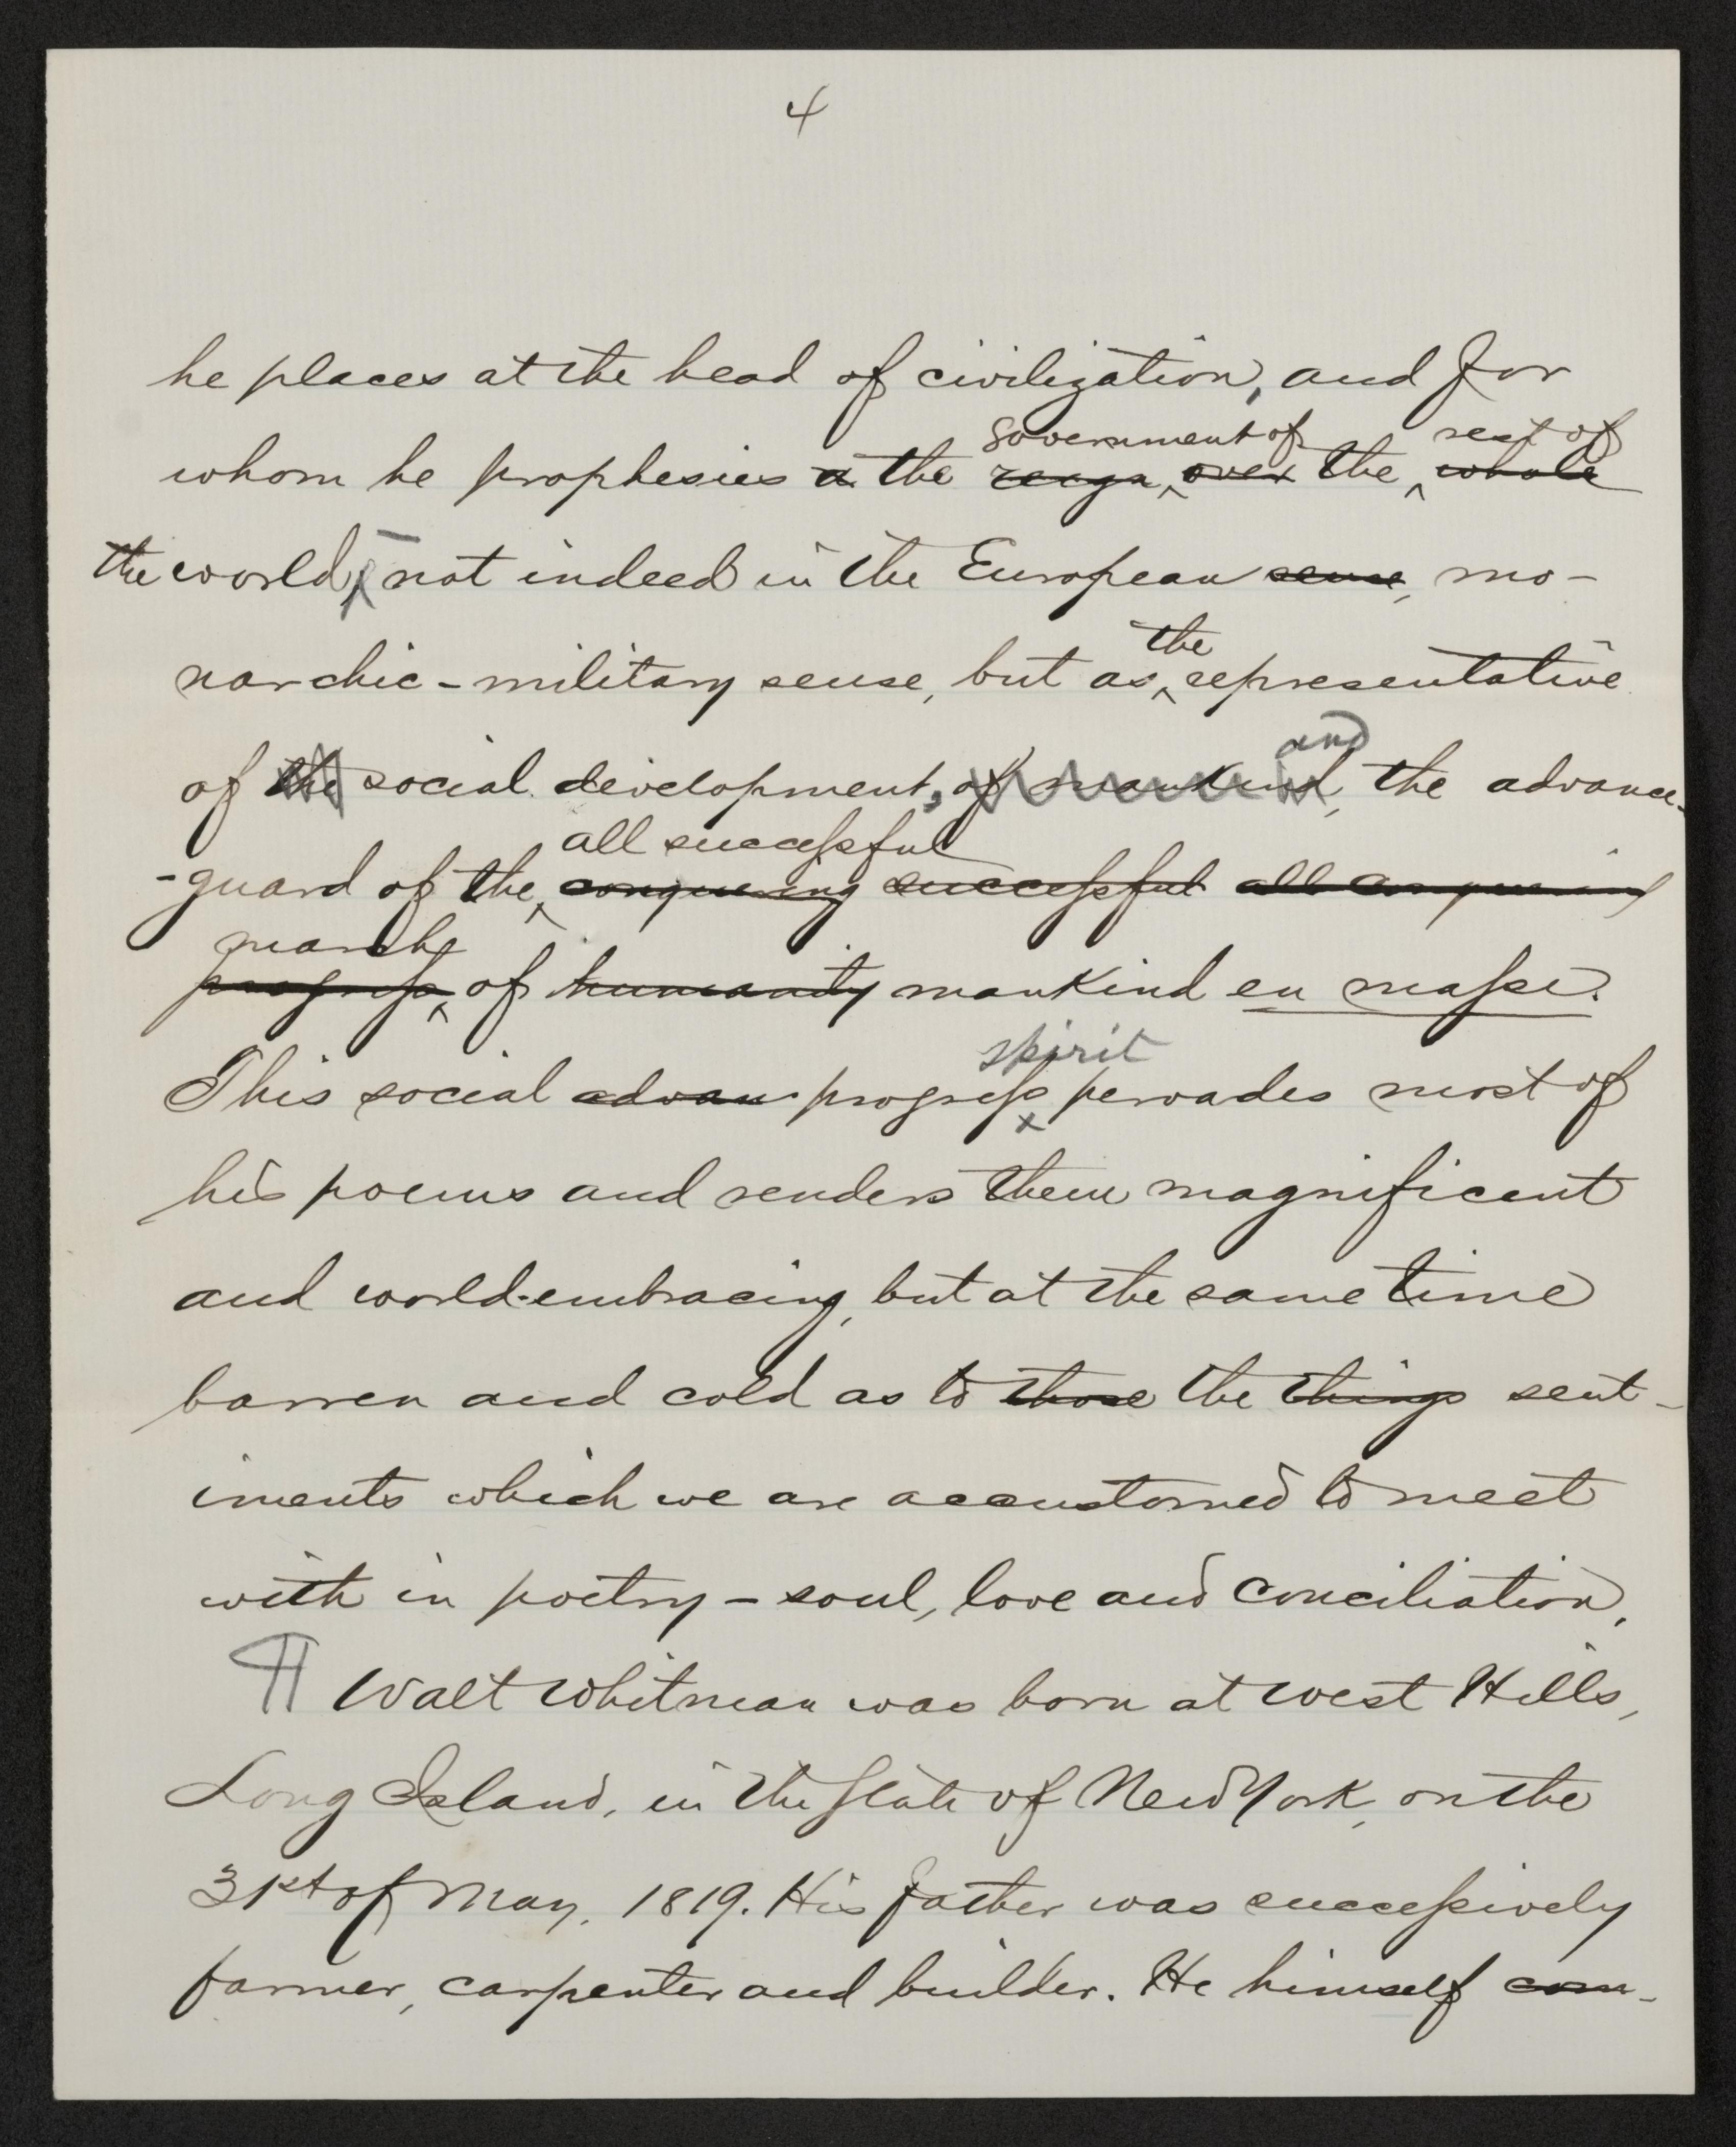 4
he places at the head of civilization, and for
government of rest of
whom he prophesies a the reign over the whole
the world, not indeed in the European sense, mo-
narchic-military sense, but as representative
the
of the social development, of mankind, the advance-
and
all successful
-guard of the conquering successful all conquering
march
progress of humanity mankind en masse.
spirit
This social advan progress pervades most of
his poems and renders them magnificent
and world-embracing, but at the same time
barren and cold as to those the things sent-
iments which we are accustomed to meet
with in poetry – soul, love and conciliation.
¶ Walt Whitman was born at West Hills,
Long Island, in the State of New York, on the
31st of May, 1819. His father was successively
farmer, carpenter and builder. He himself com-